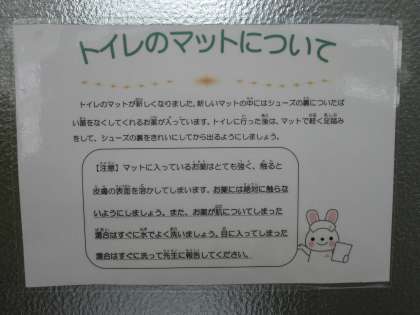 トイレのマットについて
トイレのマットが新しくなりました。新しいマットの中にはシューズの裏についたば
い菌をなくしてくれるお薬が入っています。トイレに行った後は、マットで軽く足踏み
をして、シューズの裏をきれいにしてから出るようにしましょう。
【注意】マットに入っているお薬はとても強く、触ると
皮膚の表面を溶かしてしまいます。お薬には絶対に触らな
いようにしましょう。また、お薬が肌についてしまった
場合はすぐに水でよく洗いましょう。目に入ってしまった
場合はすぐに洗って先生に報告してください。